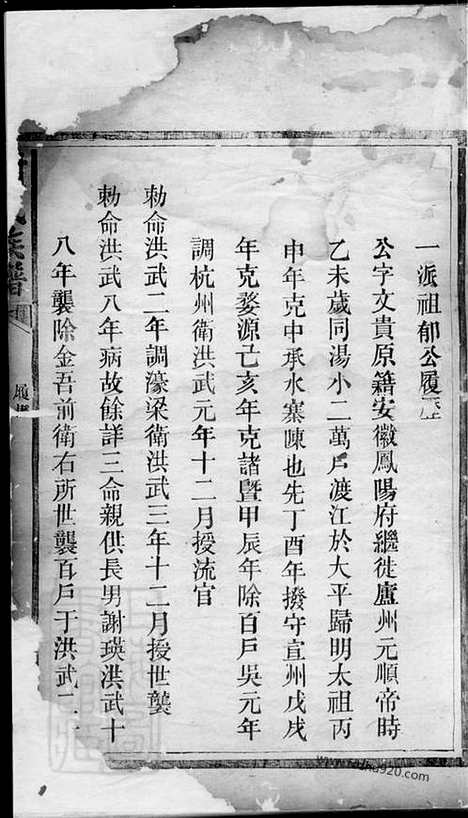 一派祖郁公履歴
公字文貴原籍安徽鳳陽府繼徙廬州元順帝時
乙未歲同湯小二萬戶渡江於大平歸明太祖丙
申年克中承水寨陳也先丁酉年撥守宜州戊戌
年克婺源己亥年克諸暨甲辰年除百戶吳元年
調杭州衛洪武元年十二月授流官
勅命洪武二年調濠梁衛洪武三年十二月授世襲
勅命洪武八年病故餘詳三命親供長男謝瑛洪武十
八年襲除金吾前衛右所世襲百戶于洪武二
氏族譜
履歷